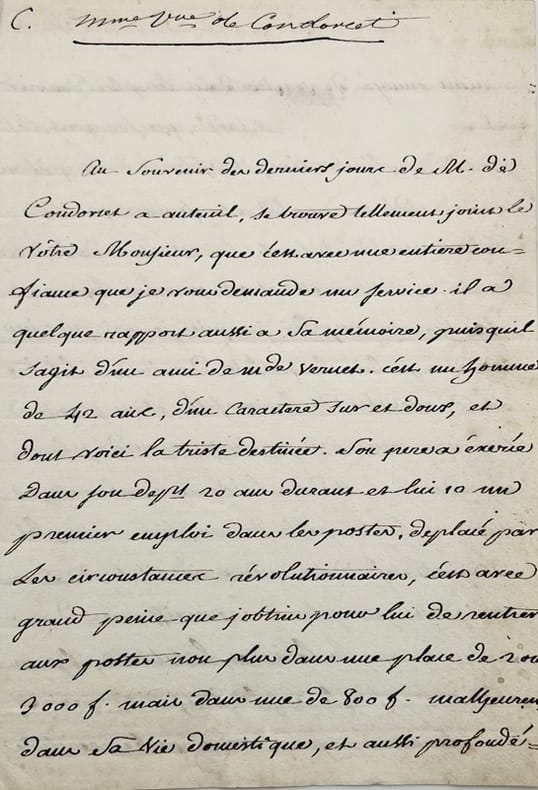 C. Mme Vve de Condorcet
Au Souvenir des derniers jours de M. de
Condorcet a auteuil, se trouve tellement joint le
Vôtre Monsieur, que c'est avec une entiere con=
fiance que je vous demande un service. il a
quelque rapport aussi a Sa mémoire, puisquil
s'agit d'un ami de mde Vernet. c'est un homme
de 42 ans, d'un Caractere sur et doux, et
dont voici la triste destinée. Son pere a éxercé
Dans son dept 20 ans durant et lui 10 un
premier emploi dans les postes. deplacé par
Les circonstances révolutionnaires, c'est avec
grand peine que j'obtins pour lui de rentrer
aux postes non plus dans une place de 2 ou
3000 f. mais dans une de 800 f. malheureux
dans Sa Vie domestique, et aussi profondé=